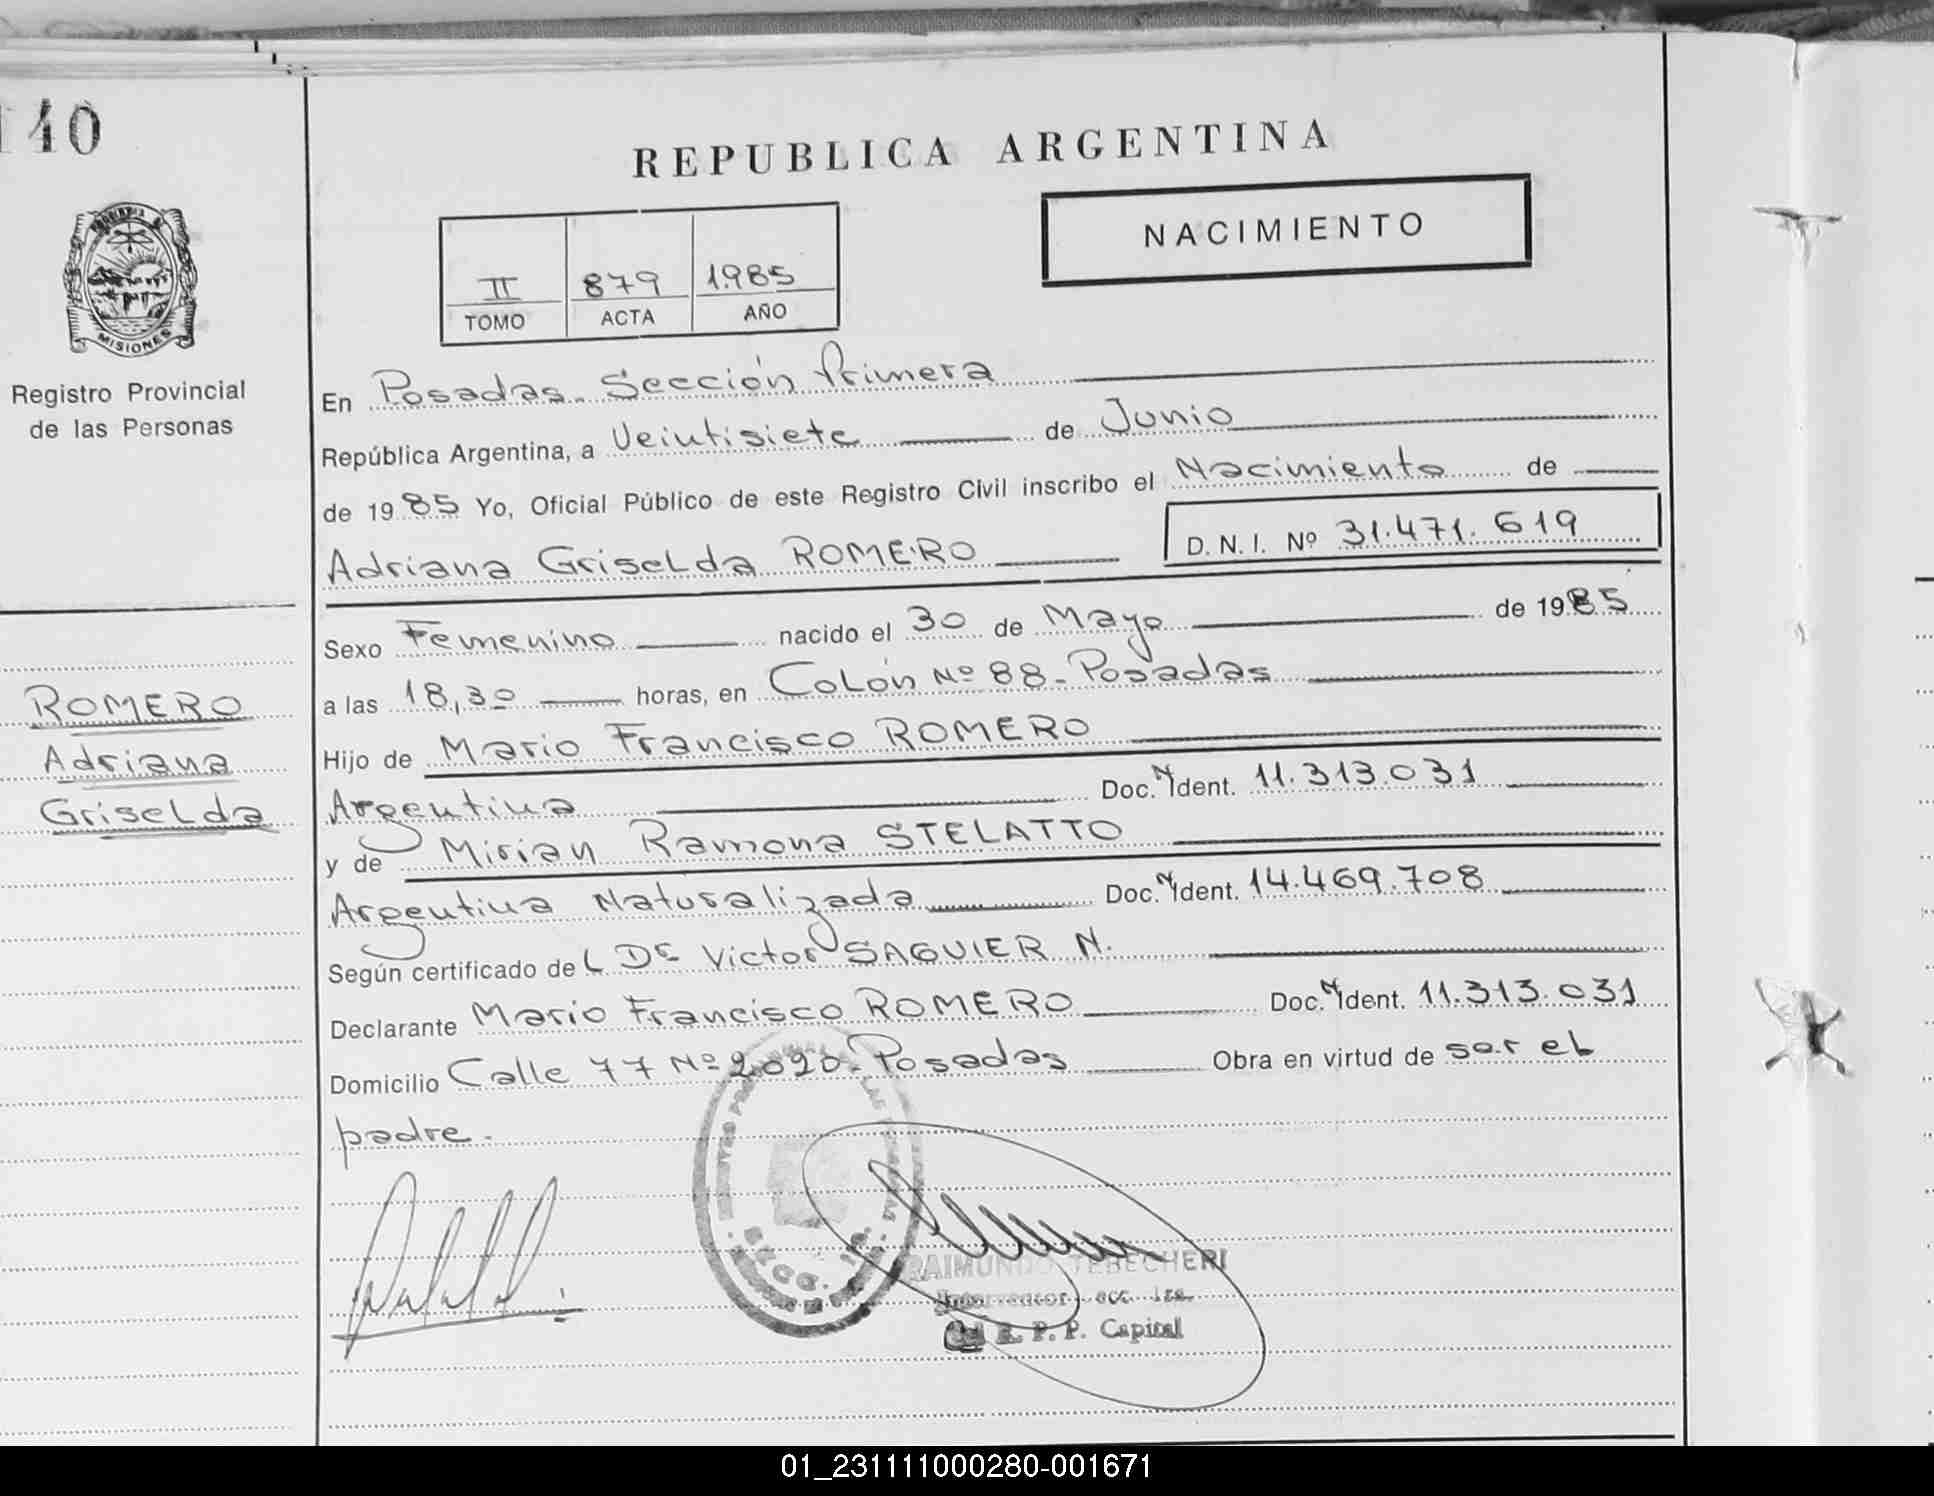 140
MISIONES
Registro Provincial
de las Personas
ROMERO
Adriana
Griselda
REPUBLICA ARGENTINA
NACIMIENTO
II 879 1.985
TOMO ACTA AÑO
En Posadas. Sección Primera
República Argentina, a Veintisiete de Junio
de 1985 Yo, Oficial Público de este Registro Civil inscribo el Nacimiento de
Adriana Griselda ROMERO D. N. I. Nº 31.471.619
Sexo Femenino nacido el 30 de Mayo de 1985
a las 18,30 horas, en Colón Nº 88 - Posadas
Hijo de Mario Francisco ROMERO
Argentina Doc. Ident. 11.313.031
y de Mirian Ramona STELATTO
Argentina Naturalizada Doc. Ident. 14.469.708
Según certificado del Dr Victor SAGUIER N.
Declarante Mario Francisco ROMERO Doc. Ident. 11.313.031
Domicilio Calle 77 Nº 2020 - Posadas Obra en virtud de ser el
padre.
RAIMUNDO TEBECHERI
R. P. P. Capital
01_231111000280-001671